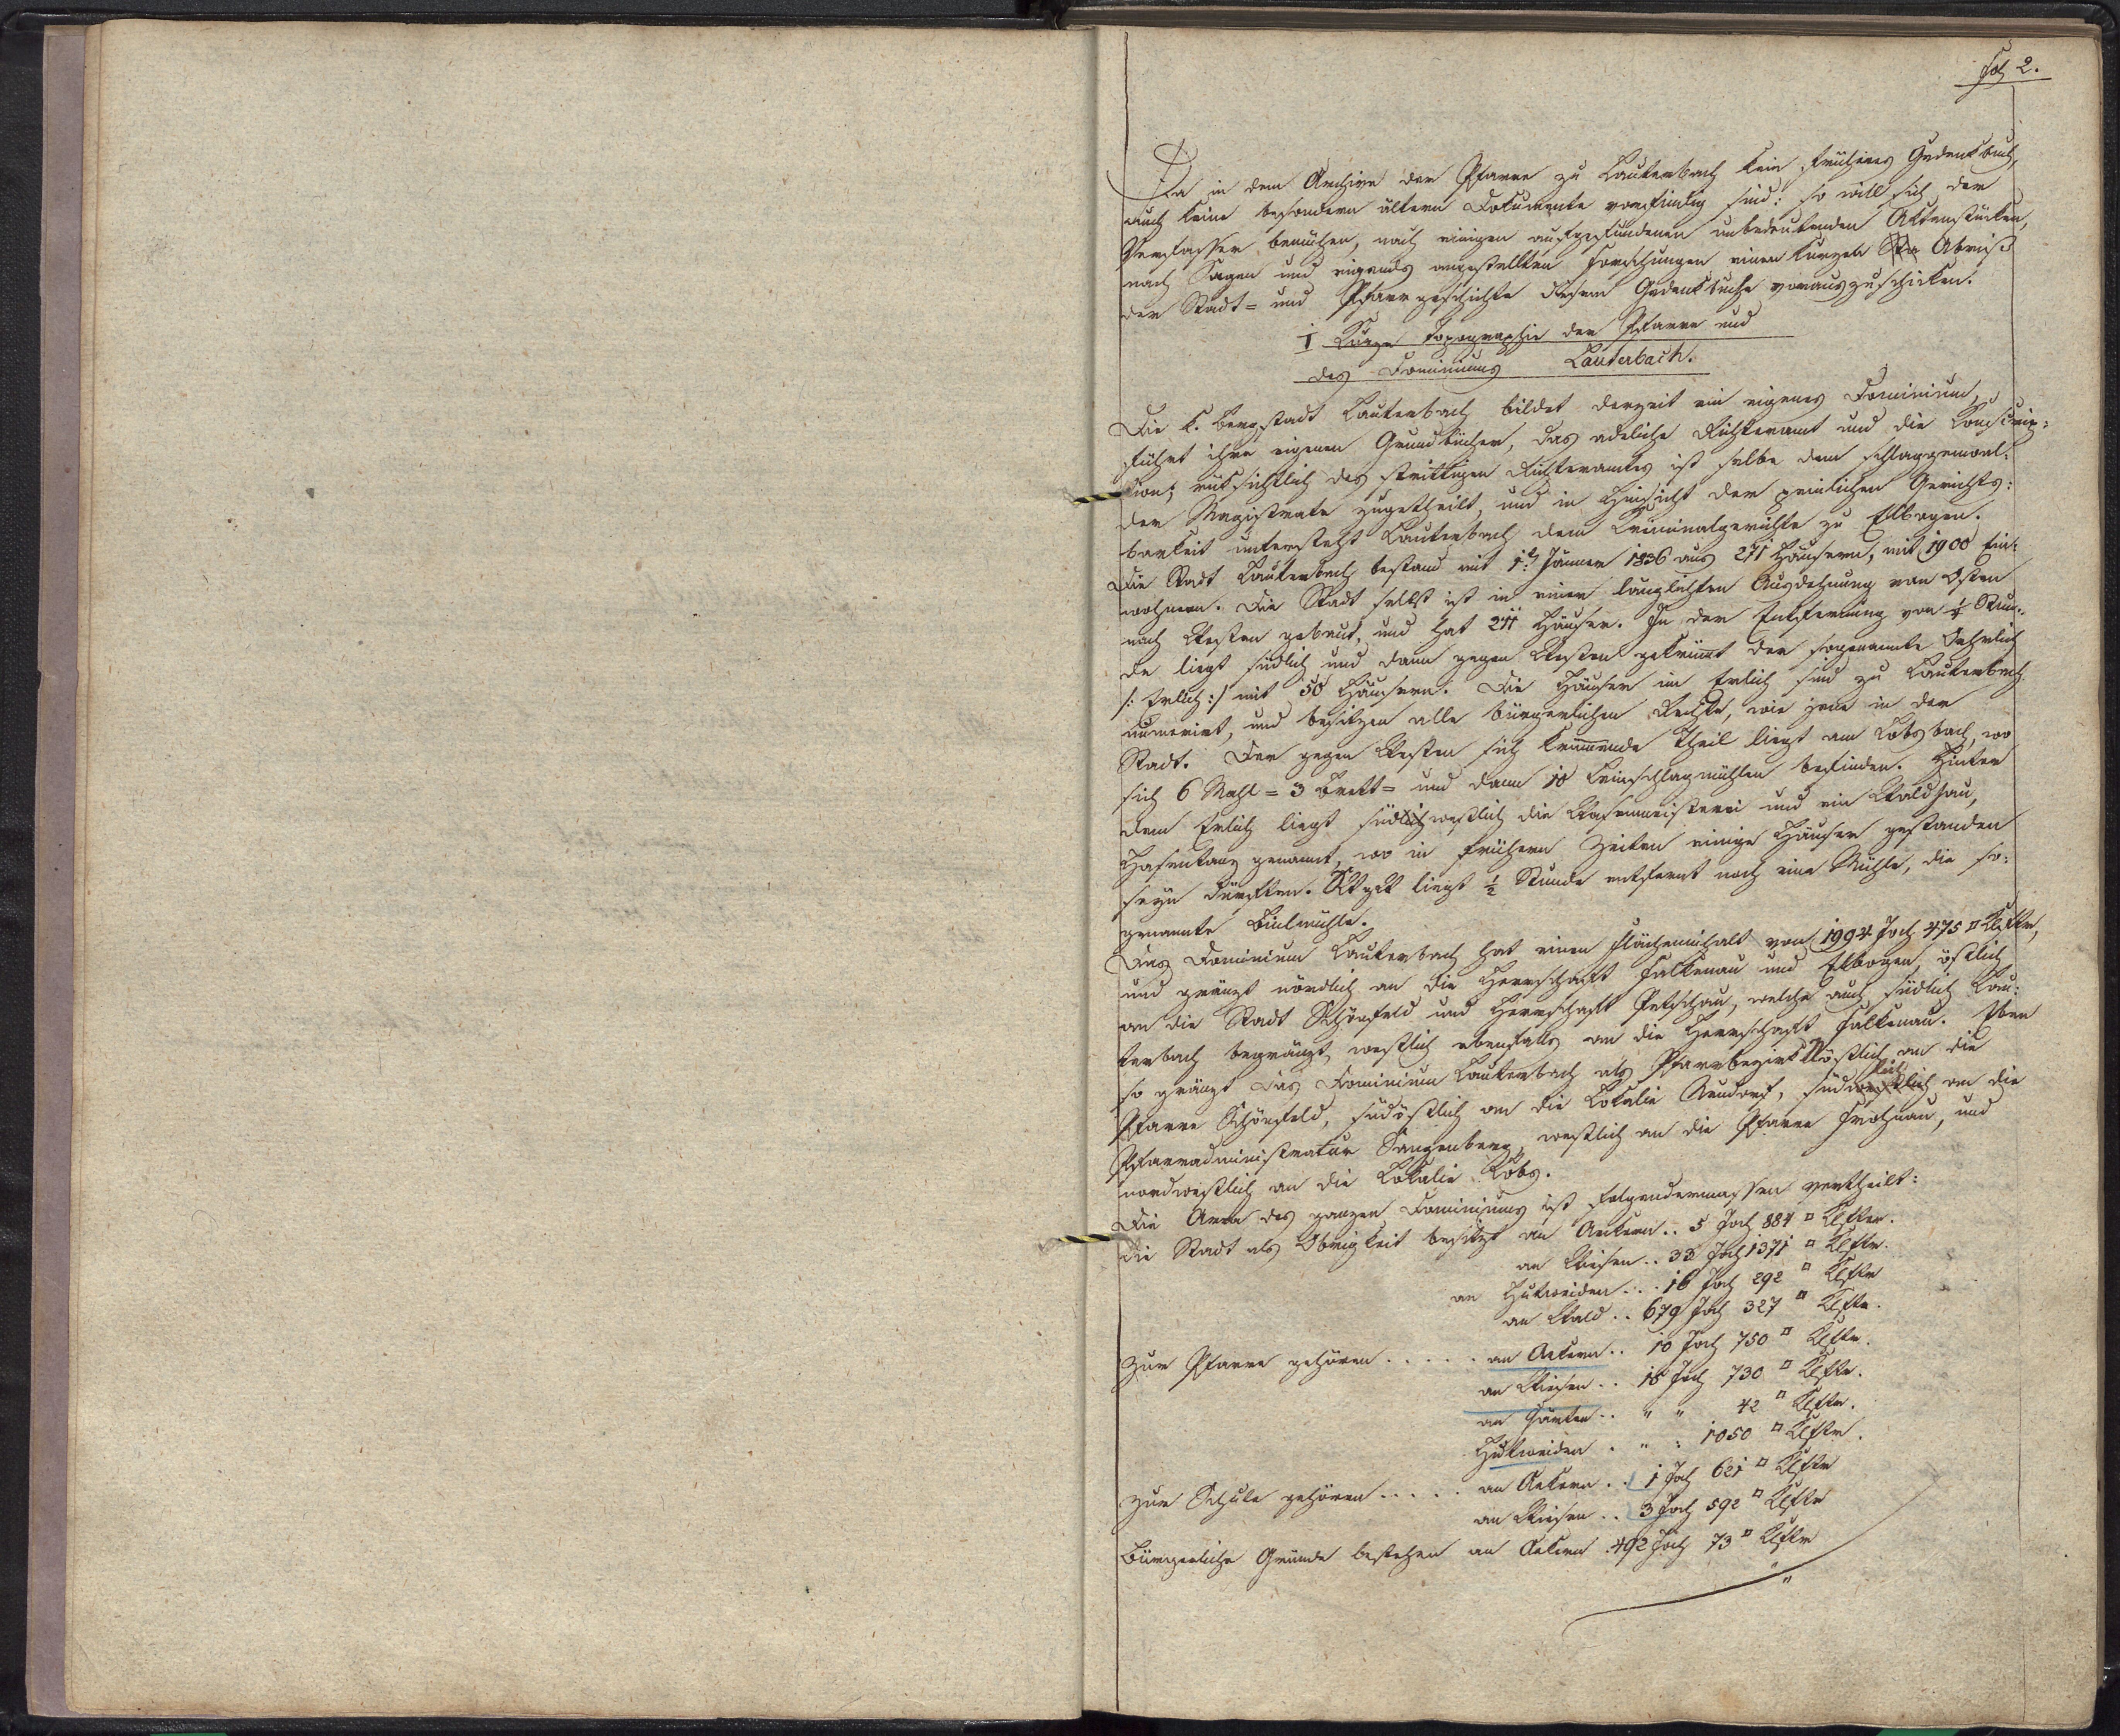 Fol 2.
Da in dem Archive der Pfarre zu Lauterbach kein früheres Gedenkbuch,
auch keine besondern ältern Dokumente vorfindig sind: so will sich der
Verfasser bemühen, nach einigen aufgefundenen unbedeutenden Aktenstücken,
nach Sagen und eigends angestellten Forschungen einen kurzen Abriß
der Stadt= und Pfarrgeschichte diesem Gedenkbuche vorauszuschicken.
I Kurze Topographie der Pfarre und
des Dominiums Lauterbach.
Die k. Bergstadt Lauterbach bildet derzeit ein eigenes Dominium,
führt ihre eigenen Grundbücher, das adeliche Richteramt und die Konscrip:
tion; rüksichtlich des strittigen Richteramtes ist selbe dem Schlaggenwal:
der Magistrate zugetheilt, und in Hinsicht der peinlichen Gerichts:
barkeit untersteht Lauterbach dem Kriminalgerichte zu Elbogen.
Die Stadt Lauterbach bestand mit 1t. Jänner 1836 aus 271 Häusern, mit 1900 Ein:
wohnern. Die Stadt selbst ist in einer länglichten Ausdehnung von Osten
nach Westen gebaut, und hat 211 Häuser. In der Entfernung von ¼ Stun:
de liegt südlich und dann gegen Westen gekrümt der sogenannte
/: Erlich :/ mit 50 Häusern. Die Häuser im Erlich sind zu Lauterbach
numerirt, und besitzen alle bürgerlichen Rechte, wie jene in der
Stadt. Der gegen Westen sich krümmende Theil liegt am Lobsbach, wo
sich 6 Mahl= 3 Brett= und dann 10 Leinschlagmühlen befinden. Hinter
dem Erlich liegt südwestlich die Wasenmeisterei und ein Waldhau,
Hasentanz genannt, wo in frühern Zeiten einige Häuser gestanden
seyn dürften. liegt ½ Stunde entfernt noch eine Mühle, die so:
genannte
Das Dominium Lauterbach hat einen Flächeninhalt von 1994 Joch 475 □ Klftr,
und gränzt nördlich an die Herrschaft Falkenau und Elbogen östlich
an die Stadt Schönfeld und Herrschaft Petschau, welche auch südlich Lau:
terbach begränzt, westlich ebenfalls an die Herrschaft Falkenau. Eben
so gränzt das Dominium Lauterbach als Pfarrbezirk östlich an die
Pfarre Schönfeld, südöstlich an die Lokalie, südlich an die
Pfarradministratur Sangenberg, westlich an die Pfarre Frohnau, und
nordwestlich an die Lokalie Lobs.
Die Area des ganzen Dominiums ist folgendermassen vertheilt:
die Stadt als Obrigkeit besitzt an Aeckern .. 5 Joch 884 □ Klftr.
an Wiesen .. 33 Joch 1371 □ Klftr.
an Hutweiden ... 16 Joch 292 □ Klftr
an Wald .. 679 Joch 327 □ Klftr.
Zur Pfarre gehören ..... an Aekern .. 10 Joch 750 □ Klftr.
an Wiesen .. 18 Joch 730 □ Klftr.
an Gärten .. " " 42 □ Klftr.
Hutweiden . " " 1050 □ Klftr.
Zur Schule gehören ..... an Aekern .. 1 Joch 621 □ Klftr
an Wiesen .. 3 Joch 592 □ Klftr
Bürgerliche Gründe bestehen an Aekern 492 Joch 73 □ Klftr
"